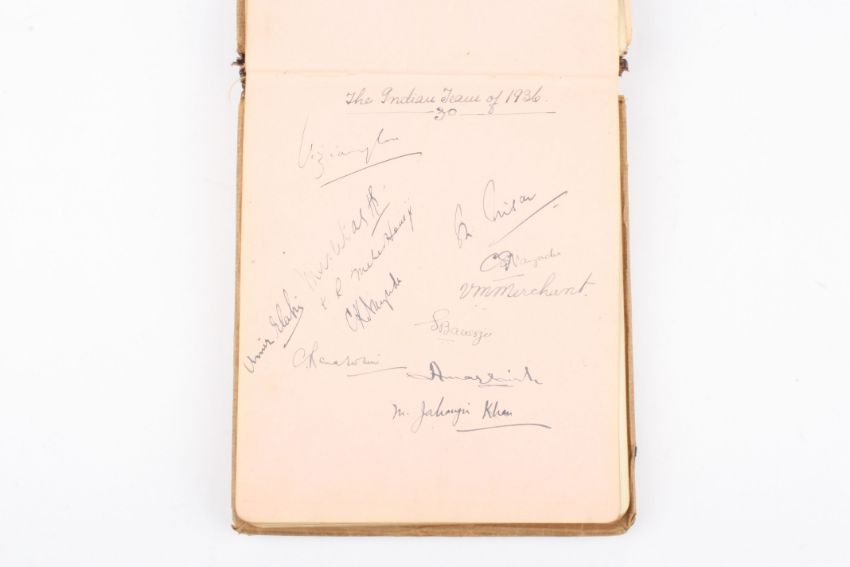 The Indian Team of 1936.
Vizianagram
Mushtaq Ali
M. Nisar
K R Meherhomji
C S Nayudu
C K Nayudu
V M Merchant.
Amir Elahi
S Banerjee
C Ramaswami
Amarnath
M. Jahangir Khan